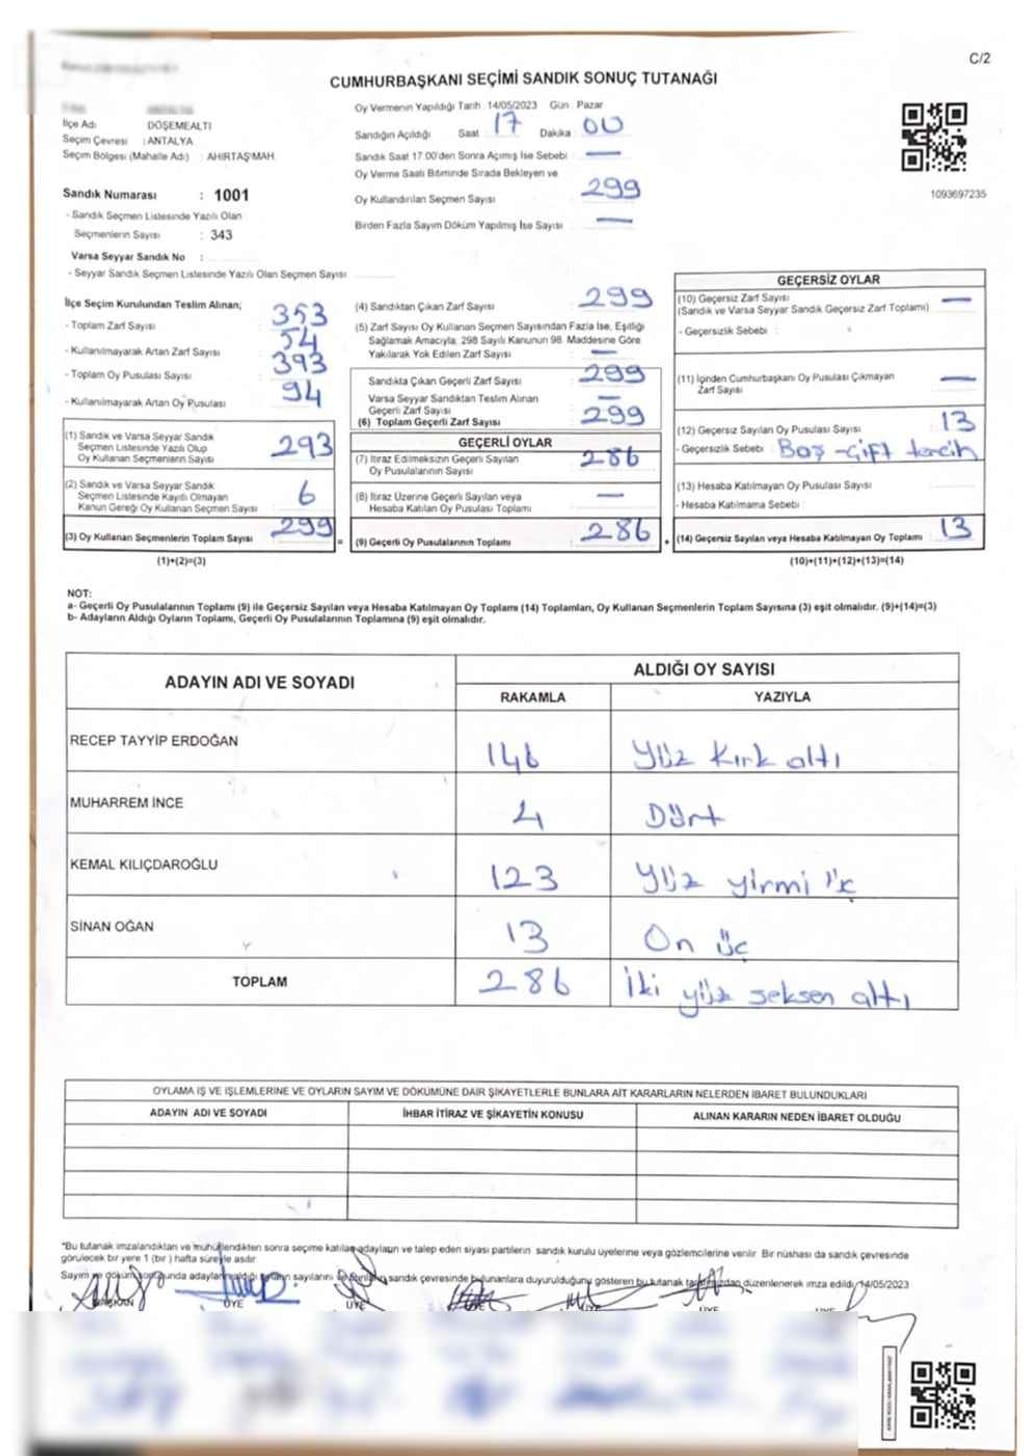 C/2
CUMHURBAŞKANI SEÇİMİ SANDIK SONUÇ TUTANAĞI
İlçe Adı DÖŞEMEALTI
Seçim Çevresi : ANTALYA
Seçim Bölgesi (Mahalle Adı) : AHIRTAŞ MAH.
Sandık Numarası : 1001
- Sandık Seçmen Listesinde Yazılı Olan
Seçmenlerin Sayısı : 343
Varsa Seyyar Sandık No :
- Seyyar Sandık Seçmen Listesinde Yazılı Olan Seçmen Sayısı
Oy Vermenin Yapıldığı Tarih 14/05/2023 Gün Pazar
Sandığın Açıldığı Saat 17 Dakika 00
Sandık Saat 17.00'den Sonra Açımış İse Sebebi : —
Oy Verme Saati Bitiminde Sırada Bekleyen ve
Oy Kullandırılan Seçmen Sayısı 299
Birden Fazla Sayım Döküm Yapılmış İse Sayısı —
1093697235
İlçe Seçim Kurulundan Teslim Alınan;
- Toplam Zarf Sayısı 353
- Kullanılmayarak Artan Zarf Sayısı 54
- Toplam Oy Pusulası Sayısı 393
- Kullanılmayarak Artan Oy Pusulası 94
(1) Sandık ve Varsa Seyyar Sandık
Seçmen Listesinde Yazılı Olup
Oy Kullanan Seçmenlerin Sayısı 293
(2) Sandık ve Varsa Seyyar Sandık
Seçmen Listesinde Kayıtlı Olmayan
Kanun Gereği Oy Kullanan Seçmen Sayısı 6
(3) Oy Kullanan Seçmenlerin Toplam Sayısı 299 =
(1)+(2)=(3)
(4) Sandıktan Çıkan Zarf Sayısı 299
(5) Zarf Sayısı Oy Kullanan Seçmen Sayısından Fazla İse, Eşitliği
Sağlamak Amacıyla; 298 Sayılı Kanunun 98. Maddesine Göre
Yakılarak Yok Edilen Zarf Sayısı —
Sandıkta Çıkan Geçerli Zarf Sayısı 299
Varsa Seyyar Sandıktan Teslim Alınan
Geçerli Zarf Sayısı —
(6) Toplam Geçerli Zarf Sayısı 299
GEÇERLİ OYLAR
(7) İtiraz Edilmeksizin Geçerli Sayılan
Oy Pusulalarının Sayısı 286
(8) İtiraz Üzerine Geçerli Sayılan veya
Hesaba Katılan Oy Pusulası Toplamı —
(9) Geçerli Oy Pusulalarının Toplamı 286 +
GEÇERSİZ OYLAR
(10) Geçersiz Zarf Sayısı —
(Sandık ve Varsa Seyyar Sandık Geçersiz Zarf Toplamı)
- Geçersizlik Sebebi :
(11) İçinden Cumhurbaşkanı Oy Pusulası Çıkmayan —
Zarf Sayısı
(12) Geçersiz Sayılan Oy Pusulası Sayısı 13
- Geçersizlik Sebebi : Boş - Çift tercih
(13) Hesaba Katılmayan Oy Pusulası Sayısı
- Hesaba Katılmama Sebebi :
(14) Geçersiz Sayılan veya Hesaba Katılmayan Oy Toplamı 13
(10)+(11)+(12)+(13)=(14)
NOT:
a- Geçerli Oy Pusulalarının Toplamı (9) ile Geçersiz Sayılan veya Hesaba Katılmayan Oy Toplamı (14) Toplamları, Oy Kullanan Seçmenlerin Toplam Sayısına (3) eşit olmalıdır. (9)+(14)=(3)
b- Adayların Aldığı Oyların Toplamı, Geçerli Oy Pusulalarının Toplamına (9) eşit olmalıdır.
ADAYIN ADI VE SOYADI
ALDIĞI OY SAYISI
RAKAMLA YAZIYLA
RECEP TAYYİP ERDOĞAN 146 Yüz Kırk altı
MUHARREM İNCE 4 Dört
KEMAL KILIÇDAROĞLU 123 Yüz yirmi üç
SİNAN OĞAN 13 On üç
TOPLAM 286 İki yüz seksen altı
OYLAMA İŞ VE İŞLEMLERİNE VE OYLARIN SAYIM VE DÖKÜMÜNE DAİR ŞİKAYETLERLE BUNLARA AİT KARARLARIN NELERDEN İBARET BULUNDUKLARI
ADAYIN ADI VE SOYADI İHBAR İTİRAZ VE ŞİKAYETİN KONUSU ALINAN KARARIN NEDEN İBARET OLDUĞU
*Bu tutanak imzalandıktan ve mühürlendikten sonra seçime katılan adayların ve talep eden siyasi partilerin sandık kurulu üyelerine veya gözlemcilerine verilir. Bir nüshası da sandık çevresinde
görülecek bir yere 1 (bir) hafta süreyle asılır.
Sayım ve döküm sonunda adayların aldığı oyların sayılarını sandık çevresinde bulunanlara duyurulduğunu gösteren bu tutanak tarafımızdan düzenlenerek imza edildi. 14/05/2023
BAŞKAN ÜYE ÜYE ÜYE ÜYE ÜYE ÜYE